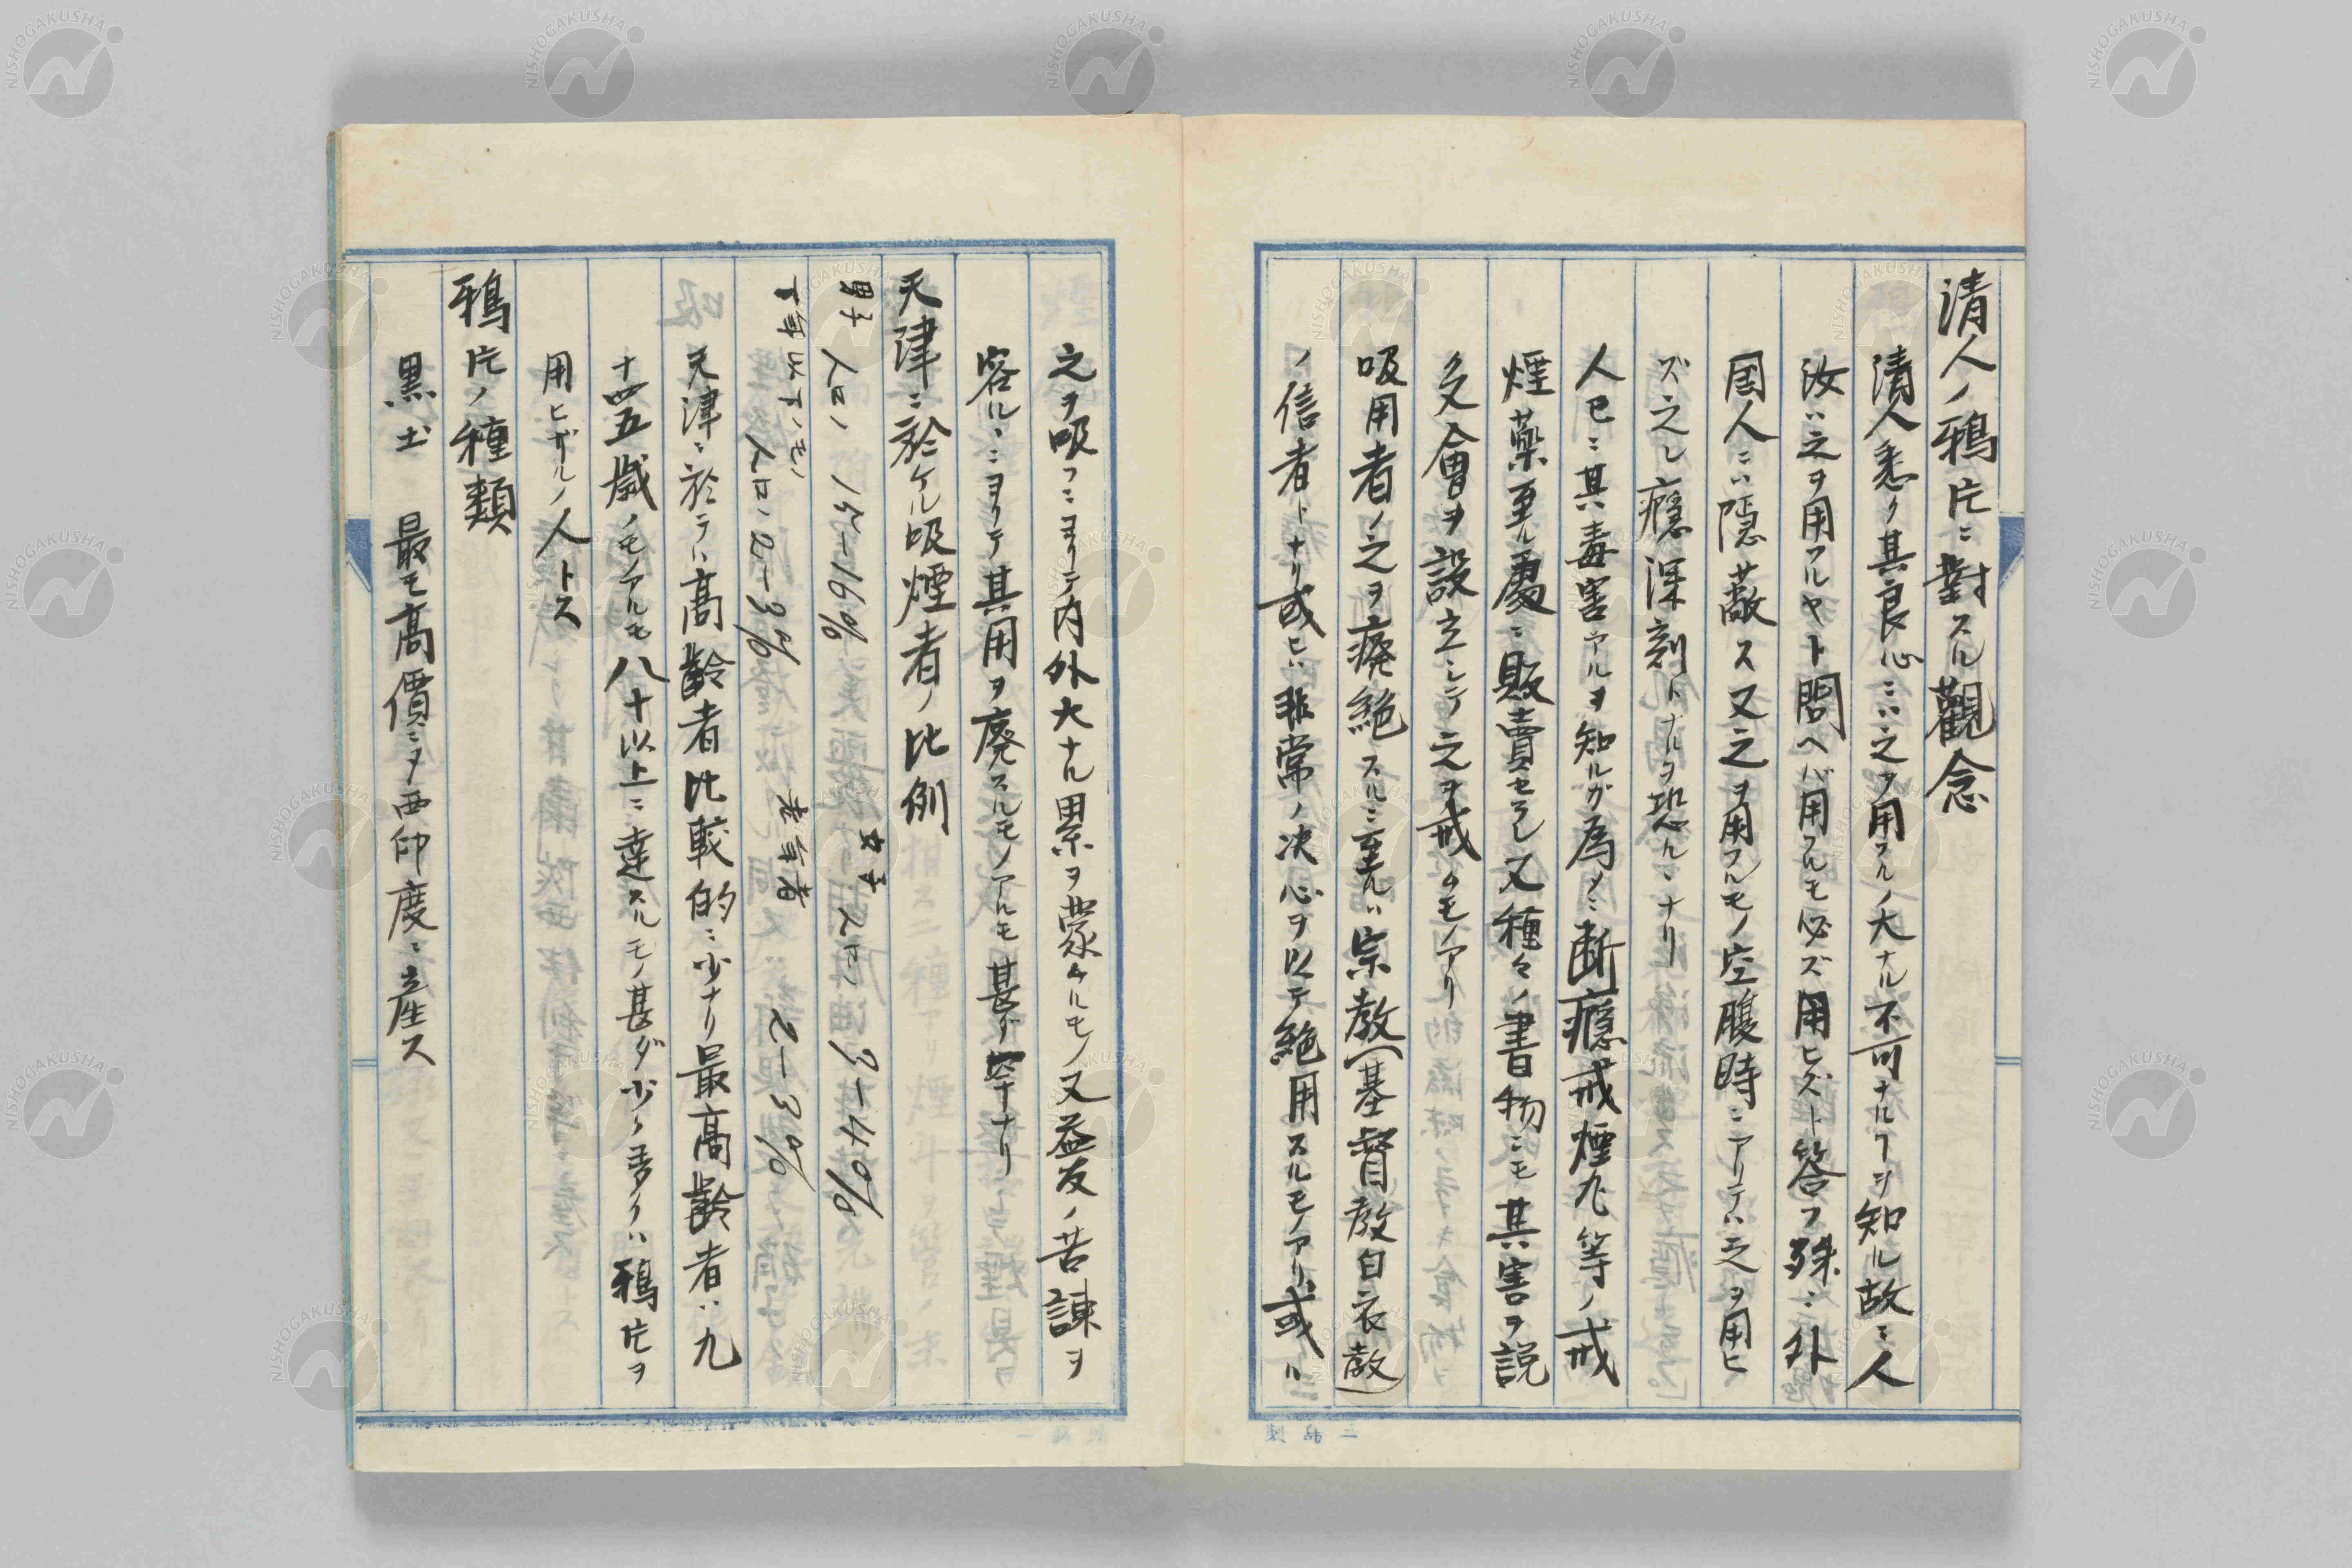 清人ノ鴉片ニ對スル觀念
清人悉ク其良心ニハ之ヲ用フルノ大ナル不可ナルヿヲ知ル故ニ人
汝ハ之ヲ用フルヤト問ヘバ用フルモ必ズ用ヒズト答フ殊ニ外
国人ニハ隠蔽ス又之ヲ用フルモノ空腹時ニアリテハ之ヲ用ヒ
ズ之レ癮深刻トナルヲ恐ルヽナリ
人已ニ其毒害アルヲ知ルガ為メニ断癮戒煙丸等ノ戒
煙藥至ル處ニ販賣セラレ又種々ノ書物ニモ其害ヲ説
キ又會ヲ設立シテ之ヲ戒ムモノアリ
吸用者ノ之ヲ廃絶スルニ至ルハ宗教(基督教白衣教)
ノ信者トナリ或ヒハ非常ノ决心ヲ以テ絶用スルモノアリ、或ハ
之ヲ吸フニヨリテ内外大ナル累ヲ蒙ケルモノ又益友ノ苦諫ヲ
容ルヽニヨリテ其用ヲ廃スルモノアルモ甚ダ罕ナリ
天津ニ於ケル吸煙者ノ比例
男子 人口ノ 15-16% 女子 人口ノ 3-4%
丁年以下ノモノ 人口ノ 2-3% 老年者 2-3%
天津ニ於テハ高齢者比較的ニ少ナリ最高齢者ハ九
十四五歳ノモノアルモ八十以上ニ達スルモノ甚ダ少ク多クハ鴉片ヲ
用ヒザルノ人トス
鴉片ノ種類
黒土 最モ高價ニテ西印度ニ産ス
NISHOGAKUSHA